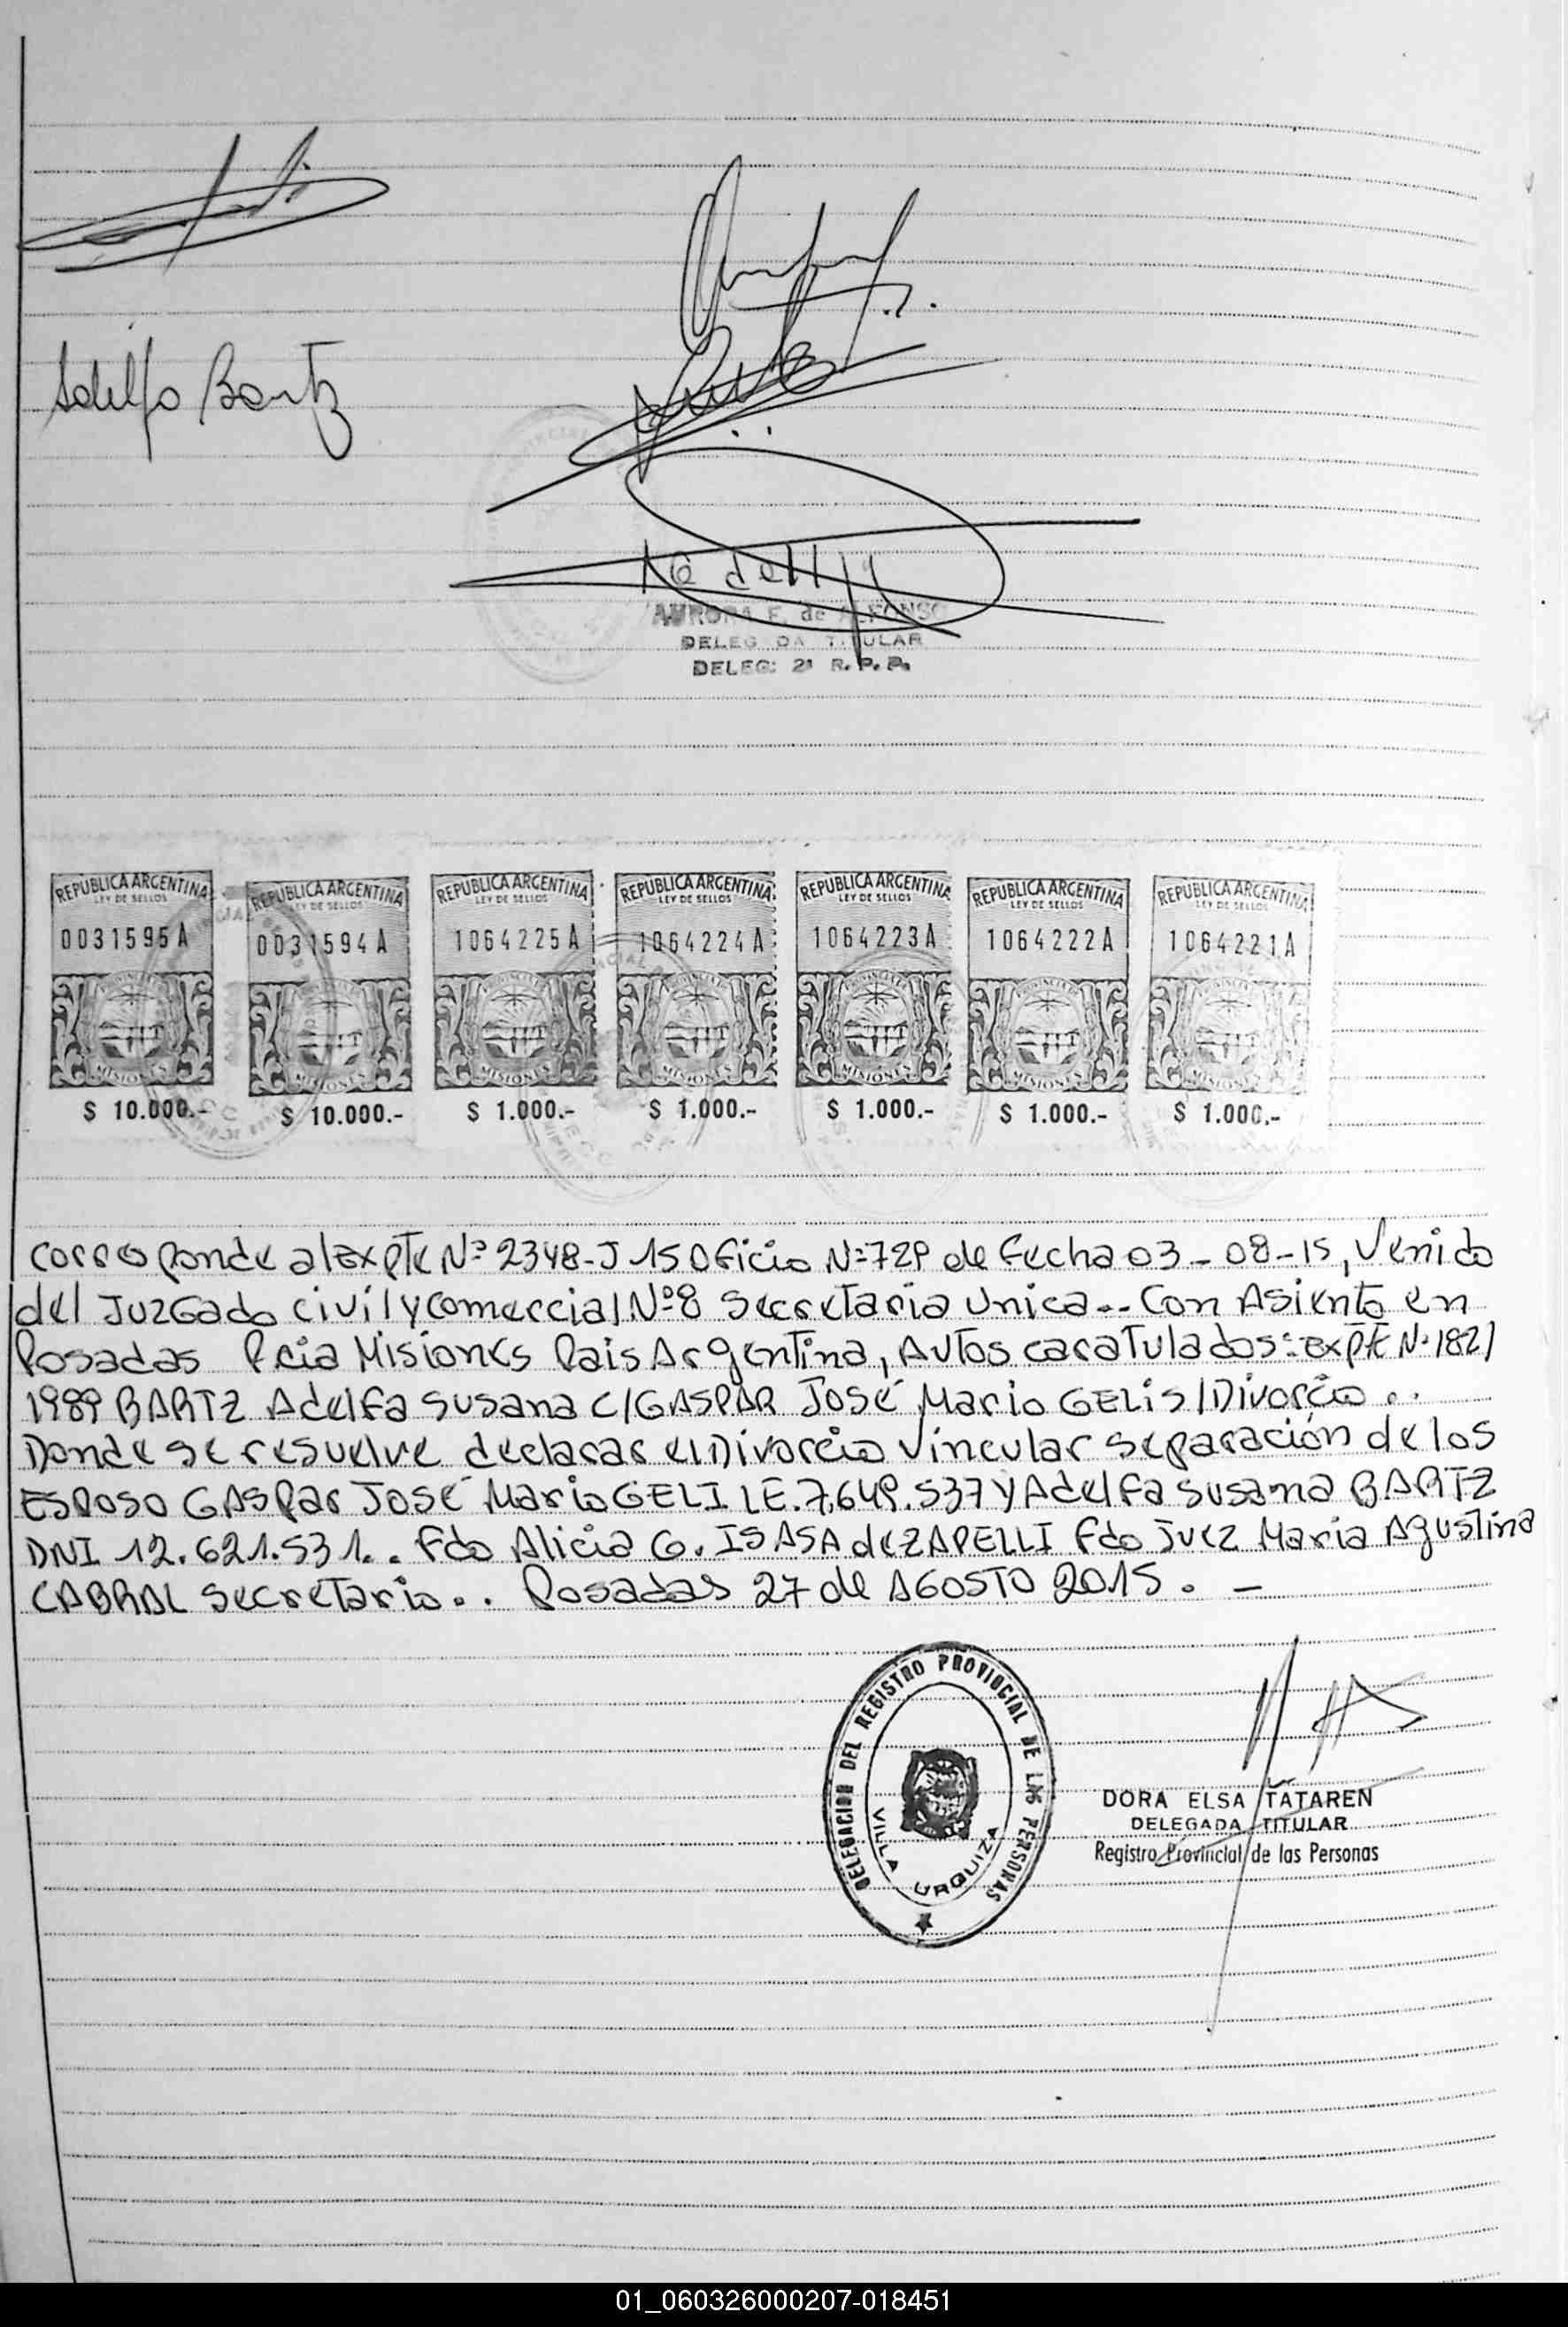 Adelfo Bartz
AURORA F. de ALFONSO
DELEGADA TITULAR
DELEG: 2ª R. P. P.
REPUBLICA ARGENTINA REPUBLICA ARGENTINA REPUBLICA ARGENTINA REPUBLICA ARGENTINA REPUBLICA ARGENTINA REPUBLICA ARGENTINA REPUBLICA ARGENTINA
LEY DE SELLOS LEY DE SELLOS LEY DE SELLOS LEY DE SELLOS LEY DE SELLOS LEY DE SELLOS LEY DE SELLOS
0031595A 0031594A 1064225A 1064224A 1064223A 1064222A 1064221A
MISIONES MISIONES MISIONES MISIONES MISIONES MISIONES MISIONES
$ 10.000.- $ 10.000.- $ 1.000.- $ 1.000.- $ 1.000.- $ 1.000.- $ 1.000.-
Corresponde al Expte Nº 2348-J 15 Oficio Nº 729 de fecha 03-08-15, Venido
del Juzgado Civil y Comercial Nº 8 Secretaria Unica.. Con Asiento en
Posadas Pcia Misiones Pais Argentina, Autos caratulados: expte Nº 182/
1989 BARTZ Adelfa Susana C/GASPAR José Mario GELI S/Divorcio..
Donde se resuelve declarar el Divorcio Vincular separación de los
Esposo GASPar José Mario GELI LE.7.649.537 y Adelfa Susana BARTZ
DNI 12.621.531.. Fdo Alicia G. ISASA de ZAPELLI Fdo Juez Maria Agustina
CABRAL Secretario.. Posadas 27 de AGOSTO 2015. -
DELEGACION DEL REGISTRO PROVINCIAL DE LAS PERSONAS
VILLA URQUIZA
DORA ELSA TATAREN
DELEGADA TITULAR
Registro Provincial de las Personas
01_060326000207-018451